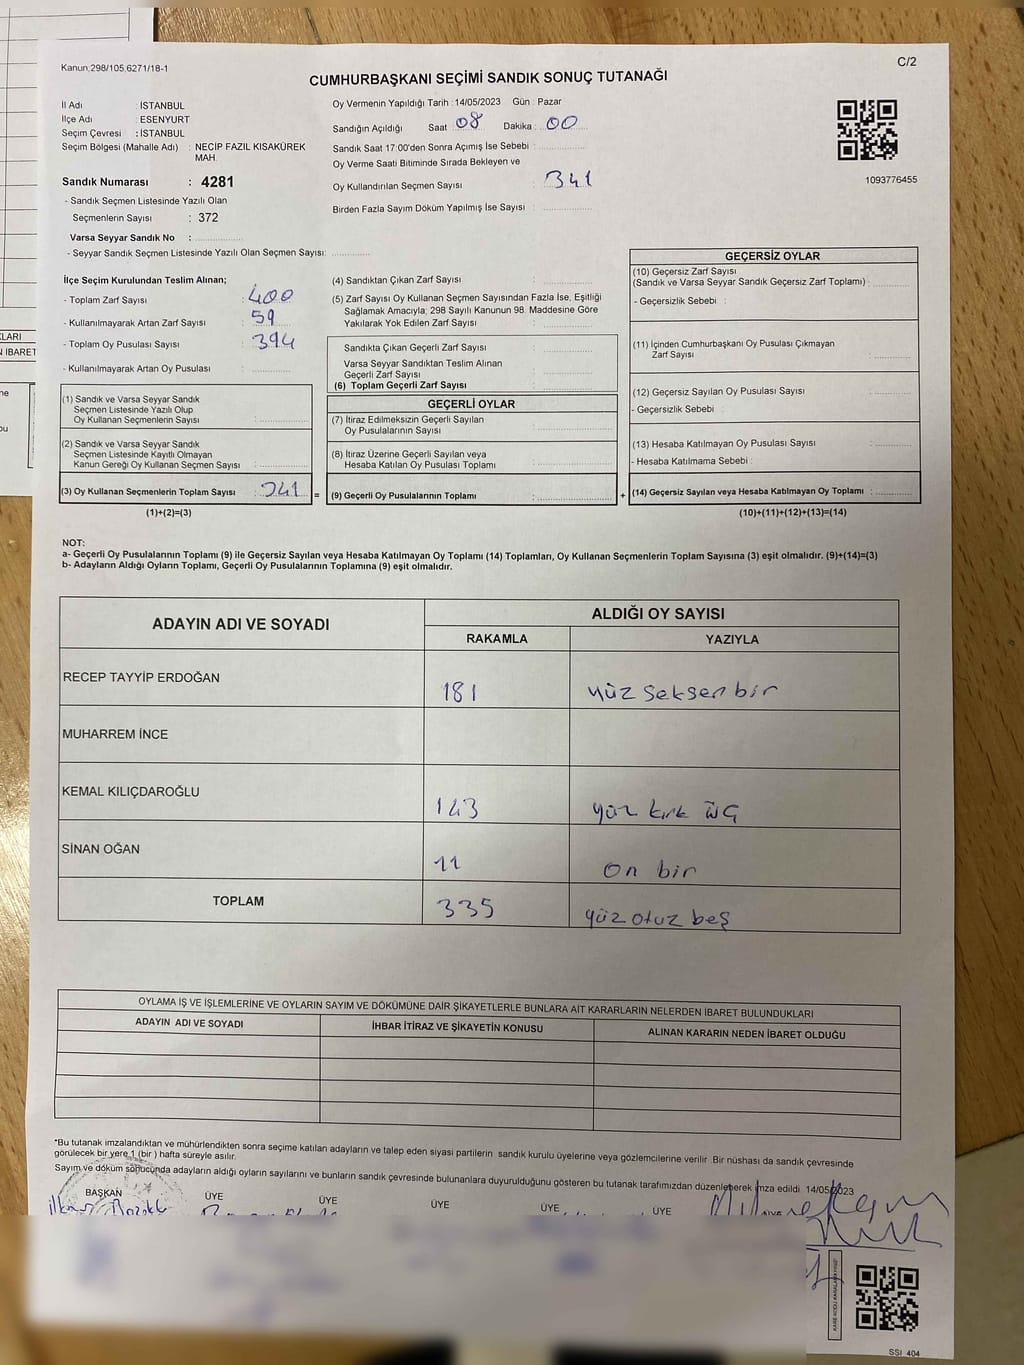 Kanun;298/105,6271/18-1
C/2
CUMHURBAŞKANI SEÇİMİ SANDIK SONUÇ TUTANAĞI
İl Adı : İSTANBUL
İlçe Adı : ESENYURT
Seçim Çevresi : İSTANBUL
Seçim Bölgesi (Mahalle Adı) : NECİP FAZIL KISAKÜREK
MAH.
Sandık Numarası : 4281
- Sandık Seçmen Listesinde Yazılı Olan
Seçmenlerin Sayısı : 372
Varsa Seyyar Sandık No :
- Seyyar Sandık Seçmen Listesinde Yazılı Olan Seçmen Sayısı:
Oy Vermenin Yapıldığı Tarih : 14/05/2023 Gün : Pazar
Sandığın Açıldığı Saat : 08 Dakika : 00
Sandık Saat 17:00'den Sonra Açımış İse Sebebi :
Oy Verme Saati Bitiminde Sırada Bekleyen ve
Oy Kullandırılan Seçmen Sayısı : 341
Birden Fazla Sayım Döküm Yapılmış İse Sayısı :
1093776455
İlçe Seçim Kurulundan Teslim Alınan;
- Toplam Zarf Sayısı : 400
- Kullanılmayarak Artan Zarf Sayısı : 59
- Toplam Oy Pusulası Sayısı : 394
- Kullanılmayarak Artan Oy Pusulası :
(1) Sandık ve Varsa Seyyar Sandık
Seçmen Listesinde Yazılı Olup
Oy Kullanan Seçmenlerin Sayısı :
(2) Sandık ve Varsa Seyyar Sandık
Seçmen Listesinde Kayıtlı Olmayan
Kanun Gereği Oy Kullanan Seçmen Sayısı :
(3) Oy Kullanan Seçmenlerin Toplam Sayısı : 341 =
(1)+(2)=(3)
(4) Sandıktan Çıkan Zarf Sayısı :
(5) Zarf Sayısı Oy Kullanan Seçmen Sayısından Fazla İse, Eşitliği
Sağlamak Amacıyla; 298 Sayılı Kanunun 98. Maddesine Göre
Yakılarak Yok Edilen Zarf Sayısı :
Sandıkta Çıkan Geçerli Zarf Sayısı :
Varsa Seyyar Sandıktan Teslim Alınan
Geçerli Zarf Sayısı :
(6) Toplam Geçerli Zarf Sayısı :
GEÇERLİ OYLAR
(7) İtiraz Edilmeksizin Geçerli Sayılan
Oy Pusulalarının Sayısı :
(8) İtiraz Üzerine Geçerli Sayılan veya
Hesaba Katılan Oy Pusulası Toplamı :
(9) Geçerli Oy Pusulalarının Toplamı : +
GEÇERSİZ OYLAR
(10) Geçersiz Zarf Sayısı
(Sandık ve Varsa Seyyar Sandık Geçersiz Zarf Toplamı) :
- Geçersizlik Sebebi :
(11) İçinden Cumhurbaşkanı Oy Pusulası Çıkmayan
Zarf Sayısı :
(12) Geçersiz Sayılan Oy Pusulası Sayısı :
- Geçersizlik Sebebi :
(13) Hesaba Katılmayan Oy Pusulası Sayısı :
- Hesaba Katılmama Sebebi :
(14) Geçersiz Sayılan veya Hesaba Katılmayan Oy Toplamı :
(10)+(11)+(12)+(13)=(14)
NOT:
a- Geçerli Oy Pusulalarının Toplamı (9) ile Geçersiz Sayılan veya Hesaba Katılmayan Oy Toplamı (14) Toplamları, Oy Kullanan Seçmenlerin Toplam Sayısına (3) eşit olmalıdır. (9)+(14)=(3)
b- Adayların Aldığı Oyların Toplamı, Geçerli Oy Pusulalarının Toplamına (9) eşit olmalıdır.
ADAYIN ADI VE SOYADI ALDIĞI OY SAYISI
RAKAMLA YAZIYLA
RECEP TAYYİP ERDOĞAN 181 yüz seksen bir
MUHARREM İNCE
KEMAL KILIÇDAROĞLU 143 yüz kırk üç
SİNAN OĞAN 11 on bir
TOPLAM 335 yüz otuz beş
OYLAMA İŞ VE İŞLEMLERİNE VE OYLARIN SAYIM VE DÖKÜMÜNE DAİR ŞİKAYETLERLE BUNLARA AİT KARARLARIN NELERDEN İBARET BULUNDUKLARI
ADAYIN ADI VE SOYADI İHBAR İTİRAZ VE ŞİKAYETİN KONUSU ALINAN KARARIN NEDEN İBARET OLDUĞU
*Bu tutanak imzalandıktan ve mühürlendikten sonra seçime katılan adayların ve talep eden siyasi partilerin sandık kurulu üyelerine veya gözlemcilerine verilir. Bir nüshası da sandık çevresinde
görülecek bir yere 1 (bir ) hafta süreyle asılır.
Sayım ve döküm sonucunda adayların aldığı oyların sayılarını ve bunların sandık çevresinde bulunanlara duyurulduğunu gösteren bu tutanak tarafımızdan düzenlenerek imza edildi. 14/05/2023
BAŞKAN ÜYE ÜYE ÜYE ÜYE ÜYE
SSI_404